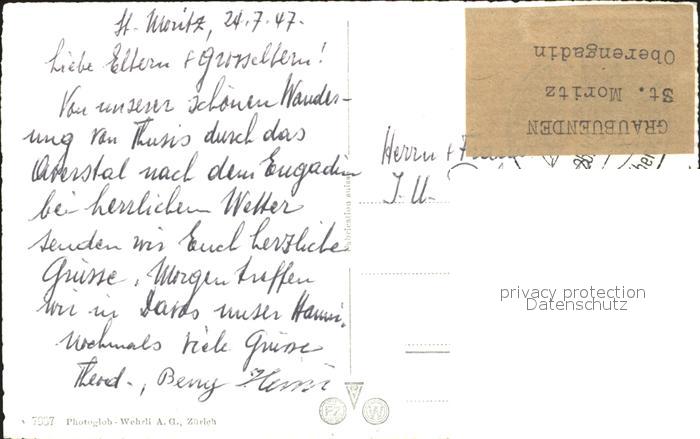 St. Moritz, 24.7.47.
Liebe Eltern + Grosseltern!
Von unserer schönen Wander-
ung von Thusis durch das
Averstal nach dem Engadin
bei herrlichem Wetter
senden wir Euch herzliche
Grüsse. Morgen treffen
wir in Davos unser Hanni.
Nochmals viele Grüsse
Theod., Benny
Herrn +
J. U.
GRAUBUENDEN
St. Moritz
Oberengadin
privacy protection
Datenschutz
7957 Photoglob-Wehrli A. G., Zürich
PZ W